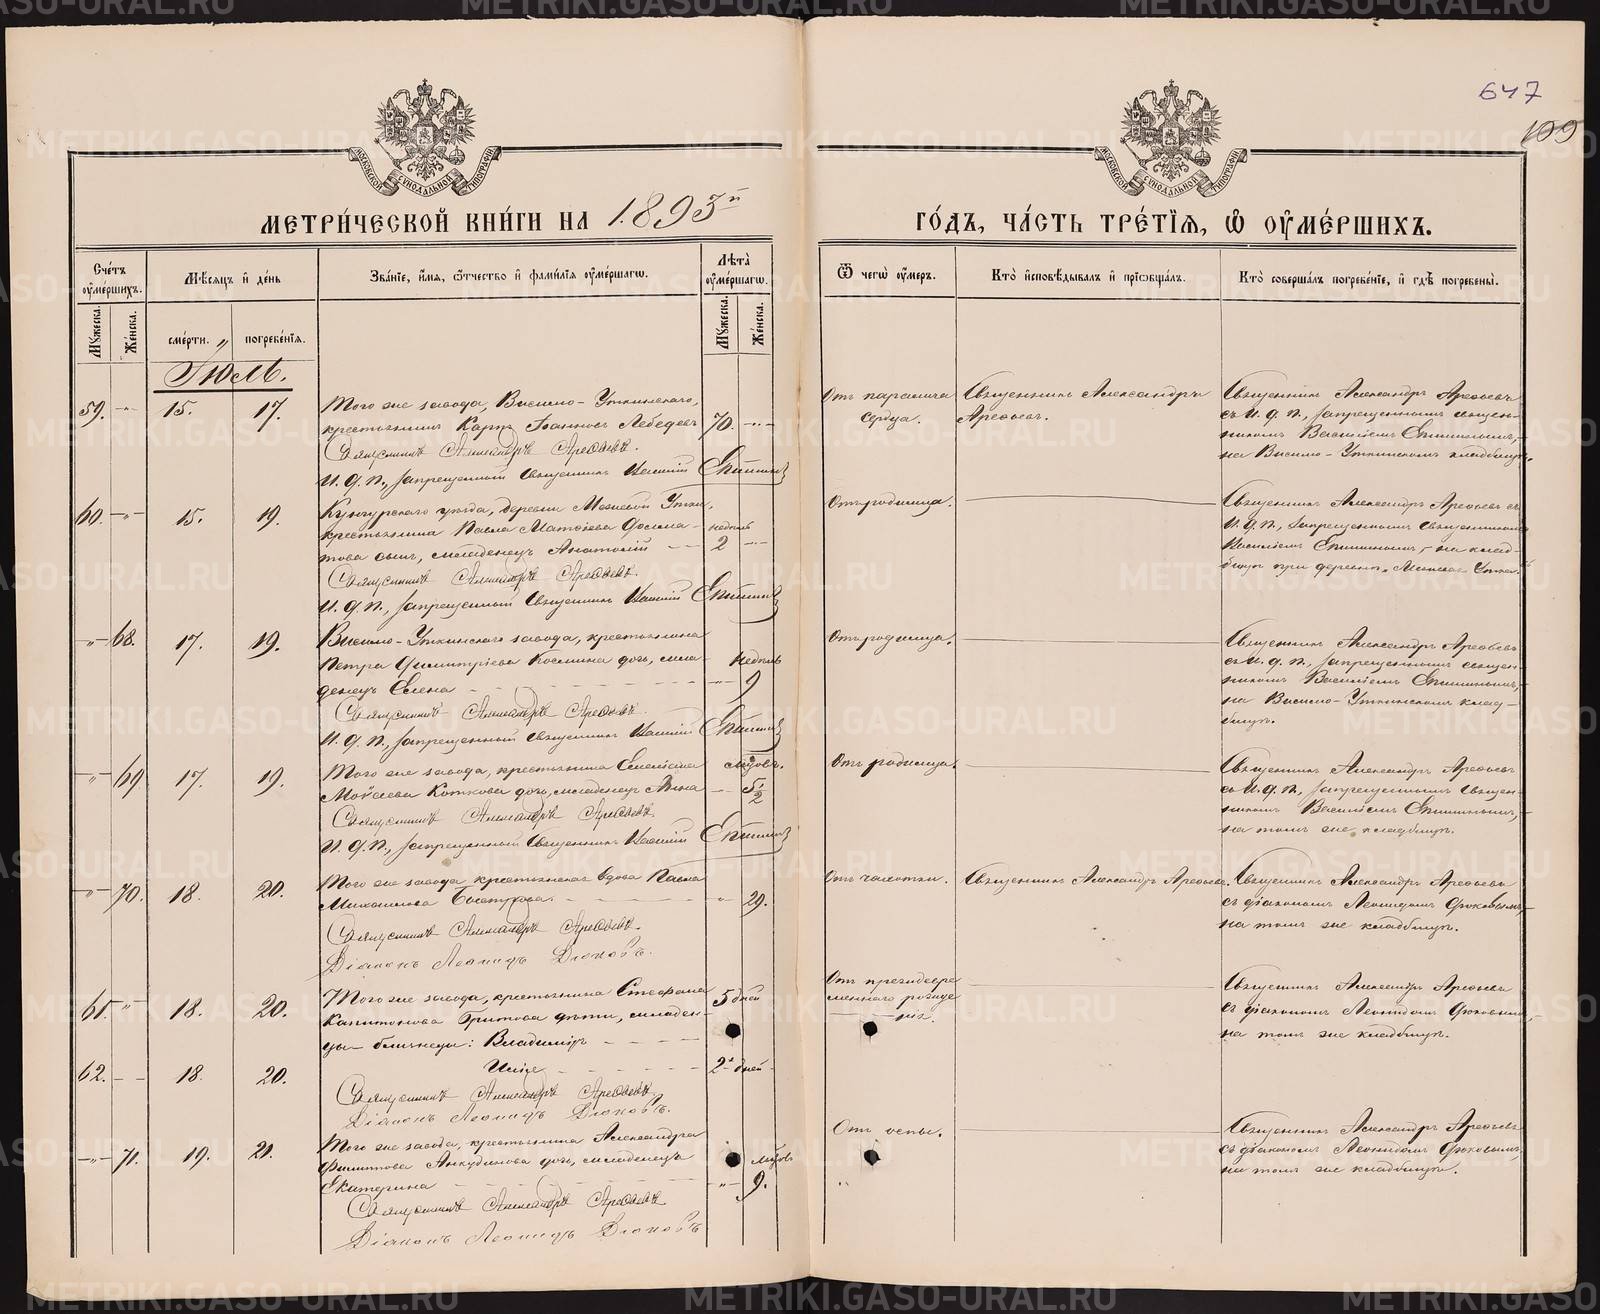 647
109
МЕТРИ́ЧЕСКОЙ КНИ́ГИ НА 1893й
ГО́ДЪ, ЧА́СТЬ ТРЕ́ТІЯ, Ѡ ОУМЕ́РШИХЪ.
Сче́тъ оумершихъ.
Мужеска.
Же́нска.
Мѣсяцъ и де́нь
сме́рти.
погребе́нія.
Зва́ніе, имя, отчество и фами́лія оуме́ршагѡ.
Лѣта̀ оуме́ршагѡ.
Мужеска.
Же́нска.
Ѿ чегѡ̀ оу́меръ.
Кто̀ исповѣ́дывалъ и пріѡбща́лъ.
Кто̀ соверша́лъ погребе́ніе, и гдѣ̀ погребены̀.
Іюль.
59. -"- 15. 17.
Того же завода, Висимо-Уткинскаго,
крестьянинъ Карпъ Іванновъ Лебедевъ
70. -"-
Священникъ Александръ Арефьевъ.
И. д. п., запрещенный Священникъ Василій Епишинъ
Отъ паралича
сердца.
Священникъ Александръ
Арефьевъ.
Священникъ Александръ Арефьевъ
съ И. д. п., запрещеннымъ священ-
никомъ Василіемъ Епишинымъ,
на Висимо-Уткинскомъ кладбищѣ.
60. -"- 15. 19.
Кунгурскаго уѣзда, деревни Утки,
крестьянина Павла Матѳіева
сынъ, младенецъ Анатолій
недѣль
2 -"-
Священникъ Александръ Арефьевъ
И. д. п., запрещенный Священникъ Василій Епишинъ
Отъ родимца.
Священникъ Александръ Арефьевъ съ
И. д. п., запрещеннымъ Священникомъ
Василіемъ Епишинымъ, на клад-
бищѣ при деревнѣ
-"- 68. 17. 19.
Висимо-Уткинскаго завода, крестьянина
Петра Димитріева Космина дочь, мла-
денецъ Елена
недѣль
-"- 9
Священникъ Александръ Арефьевъ
И. д. п., запрещенный Священникъ Василій Епишинъ
Отъ родимца.
Священникъ Александръ Арефьевъ
съ И. д. п., запрещеннымъ священ-
никомъ Василіемъ Епишинымъ,
на Висимо-Уткинскомъ клад-
бищѣ.
-"- 69 17. 19.
Того же завода, крестьянина
Моѵсеева Коткова дочь, младенецъ Анна
мѣсяцовъ.
5 1/2
Священникъ Александръ Арефьевъ
И. д. п., запрещенный Священникъ Василій Епишинъ
Отъ родимца.
Священникъ Александръ Арефьевъ
съ И. д. п., запрещеннымъ Священ-
никомъ Василіемъ Епишинымъ,
на томъ же кладбищѣ.
-"- 70. 18. 20.
Того же завода, крестьянская вдова
Михаилова
" 29.
Священникъ Александръ Арефьевъ.
Діаконъ Леонидъ Дюковъ.
Отъ чахотки.
Священникъ Александръ Арефьевъ.
Священникъ Александръ Арефьевъ
съ діакономъ Леонидомъ Дюковымъ,
на томъ же кладбищѣ.
61. " 18. 20.
Того же завода, крестьянина Стефана
Капитонова дѣти, младен-
цы-близнецы: Владиміръ
5 дней
Отъ преждевре
меннаго рожде
нія.
Священникъ Александръ Арефьевъ
съ діакономъ Леонидомъ Дюковымъ,
на томъ же кладбищѣ.
62. -- 18. 20.
2 дней
Священникъ Александръ Арефьевъ.
Діаконъ Леонидъ Дюковъ.
-"- 71. 19. 21.
Того же завода, крестьянина Александра
Филиппова Анкудинова дочь, младенецъ
Екатерина
мѣсяцовъ
-"- 9.
Священникъ Александръ Арефьевъ
Діаконъ Леонидъ Дюковъ
Отъ оспы.
Священникъ Александръ Арефьевъ
съ діакономъ Леонидомъ Дюковымъ,
на томъ же кладбищѣ.
METRIKI.GASO-URAL.RU